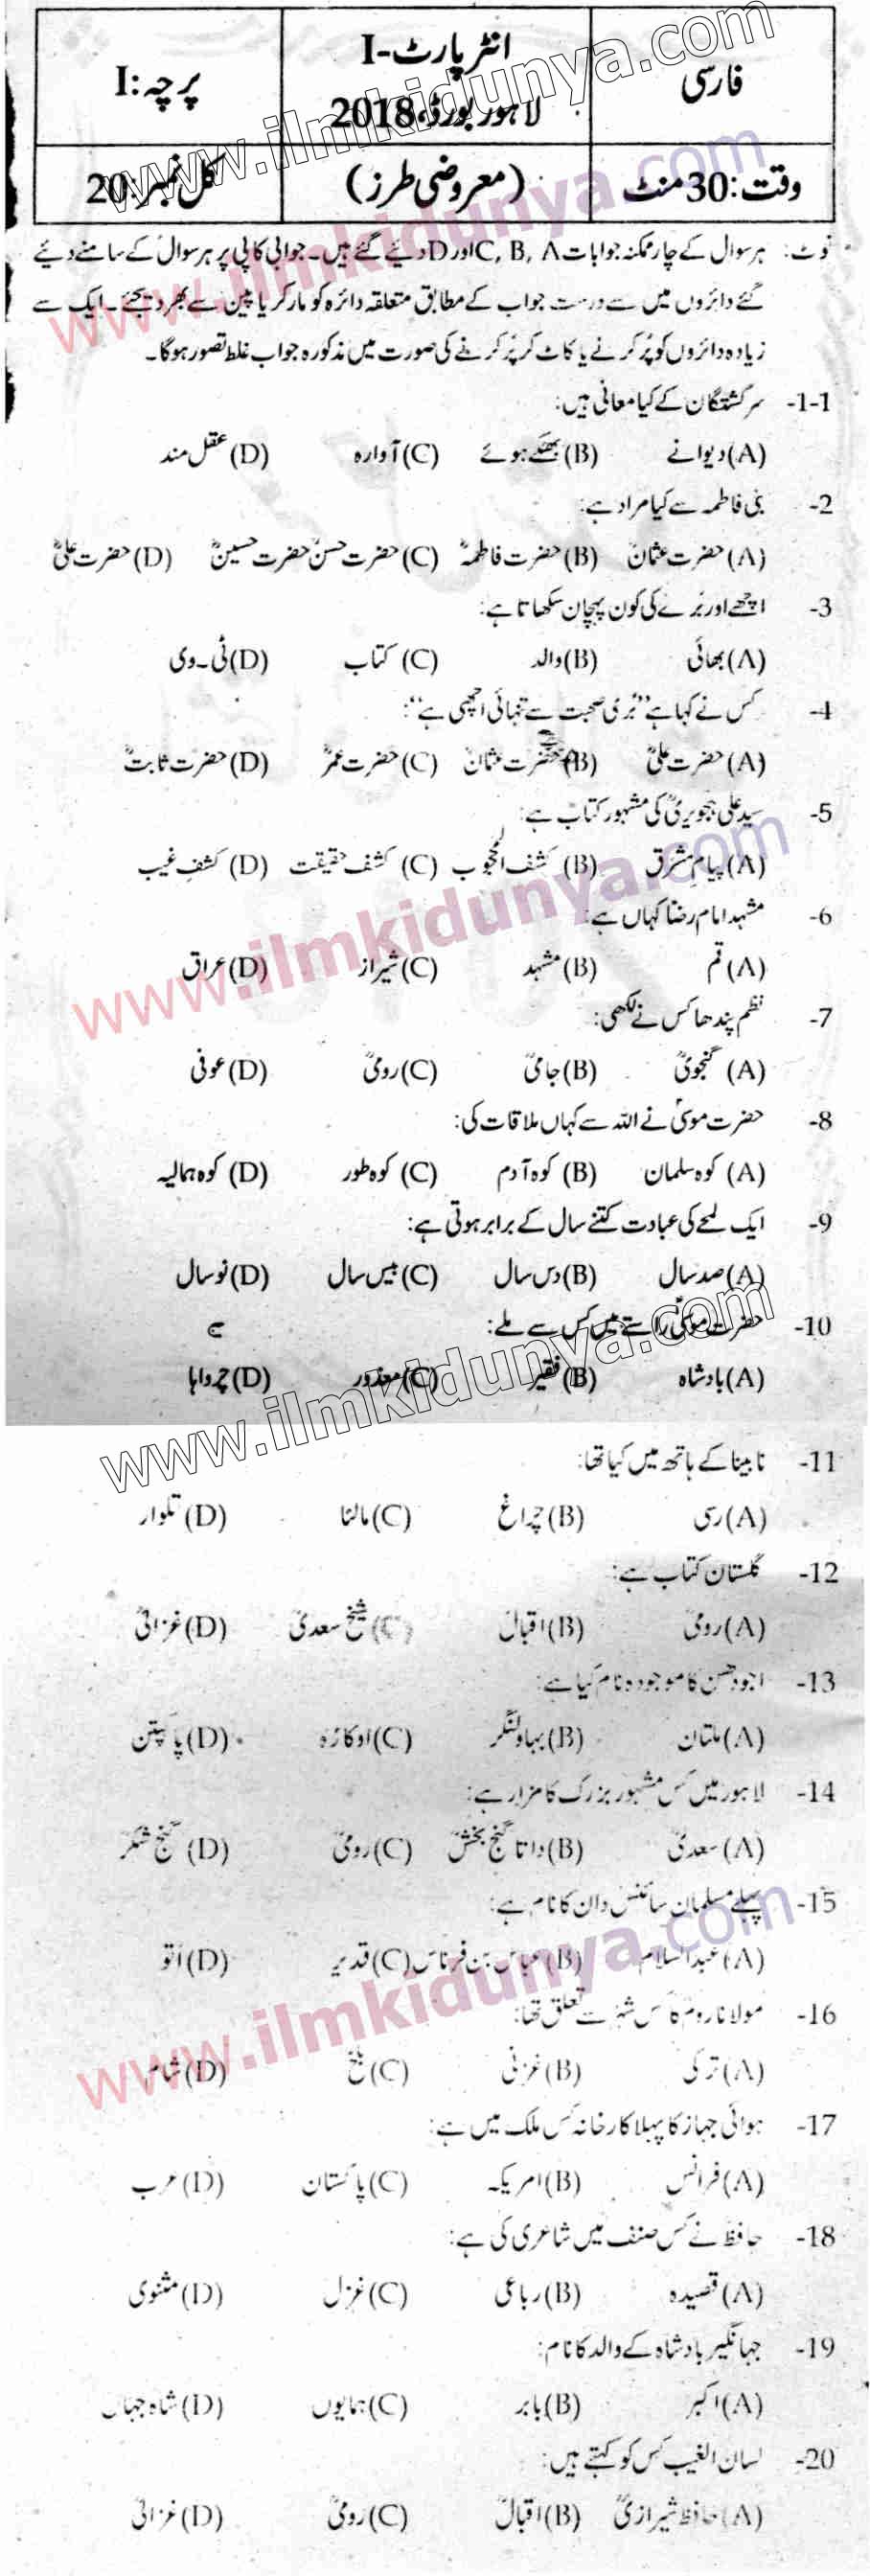 فارسی
انٹر پارٹ-I
لاہور بورڈ، 2018
پرچہ: I
وقت: 30 منٹ
(معروضی طرز)
کل نمبر: 20
نوٹ: ہر سوال کے چار ممکنہ جوابات C, B, A اور D دیئے گئے ہیں۔ جوابی کاپی پر ہر سوال کے سامنے دیئے
گئے دائروں میں سے درست جواب کے مطابق متعلقہ دائرہ کو مارکر یا پین سے بھر دیجئے۔ ایک سے
زیادہ دائروں کو پُر کرنے یا کاٹ کر پُر کرنے کی صورت میں مذکورہ جواب غلط تصور ہو گا۔
1-1- سرگشتگان کے کیا معانی ہیں:
(A) دیوانے (B) بھٹکے ہوئے (C) آوارہ (D) عقل مند
2- بنی فاطمہ سے کیا مراد ہے:
(A) حضرت عثمانؓ (B) حضرت فاطمہؓ (C) حضرت حسنؓ حضرت حسینؓ (D) حضرت علیؓ
3- اچھے اور بُرے کی کون پہچان سکھاتا ہے:
(A) بھائی (B) والد (C) کتاب (D) ٹی۔وی
4- کس نے کہا ہے ”بُری صحبت سے تنہائی اچھی ہے“:
(A) حضرت علیؓ (B) حضرت عثمانؓ (C) حضرت عمرؓ (D) حضرت ثابتؓ
5- سید علی ہجویریؒ کی مشہور کتاب ہے:
(A) پیامِ مشرق (B) کشف المحجوب (C) کشف حقیقت (D) کشفِ غیب
6- مشہد امام رضا کہاں ہے:
(A) قم (B) مشہد (C) شیراز (D) عراق
7- نظم پندھا کس نے لکھی:
(A) گنجویؒ (B) جامیؒ (C) رومیؒ (D) عوفی
8- حضرت موسیٰؑ نے اللہ سے کہاں ملاقات کی:
(A) کوہ سلمان (B) کوہ آدم (C) کوہ طور (D) کوہ ہمالیہ
9- ایک لمحے کی عبادت کتنے سال کے برابر ہوتی ہے:
(A) صد سال (B) دس سال (C) بیس سال (D) نو سال
10- حضرت موسیٰؑ راستے میں کس سے ملے:
(A) بادشاہ (B) فقیر (C) معذور (D) چرواہا
11- نابینا کے ہاتھ میں کیا تھا:
(A) رسی (B) چراغ (C) مالٹا (D) تلوار
12- گلستان کتاب ہے:
(A) رومیؒ (B) اقبالؒ (C) شیخ سعدیؒ (D) غزالیؒ
13- اجودھن کا موجودہ نام کیا ہے:
(A) ملتان (B) بہاولنگر (C) اوکاڑہ (D) پاکپتن
14- لاہور میں کس مشہور بزرگ کا مزار ہے:
(A) سعدیؒ (B) داتا گنج بخشؒ (C) رومیؒ (D) گنج شکرؒ
15- پہلے مسلمان سائنس دان کا نام ہے:
(A) عبدالسلام (B) عباس بن فرناس (C) قدیر (D) اتو
16- مولانا روم کا کس شہر سے تعلق تھا:
(A) ترکی (B) غزنی (C) بلخ (D) شام
17- ہوائی جہاز کا پہلا کارخانہ کس ملک میں ہے:
(A) فرانس (B) امریکہ (C) پاکستان (D) عرب
18- حافظ نے کس صنف میں شاعری کی ہے:
(A) قصیدہ (B) رباعی (C) غزل (D) مثنوی
19- جہانگیر بادشاہ کے والد کا نام:
(A) اکبر (B) بابر (C) ہمایوں (D) شاہ جہاں
20- لسان الغیب کس کو کہتے ہیں:
(A) حافظ شیرازیؒ (B) اقبالؒ (C) رومیؒ (D) غزالیؒ
www.ilmkidunya.com
www.ilmkidunya.com
www.ilmkidunya.com
www.ilmkidunya.com
www.ilmkidunya.com